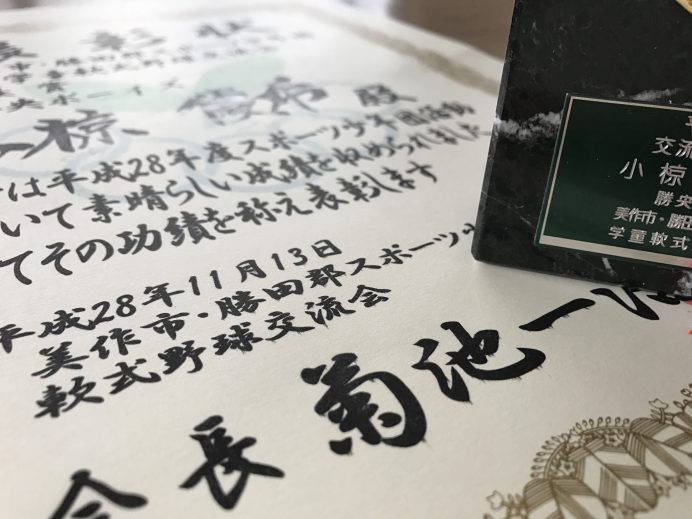 彰状
小椋 殿
は平成28年度スポーツ少年団活動
いて素晴らしい成績を収められました
てその功績を称え表彰します
平成28年11月13日
美作市・勝田郡スポーツ少
軟式野球交流会
会長 菊池一
交流
小椋
勝央
美作市・勝田
学童軟式